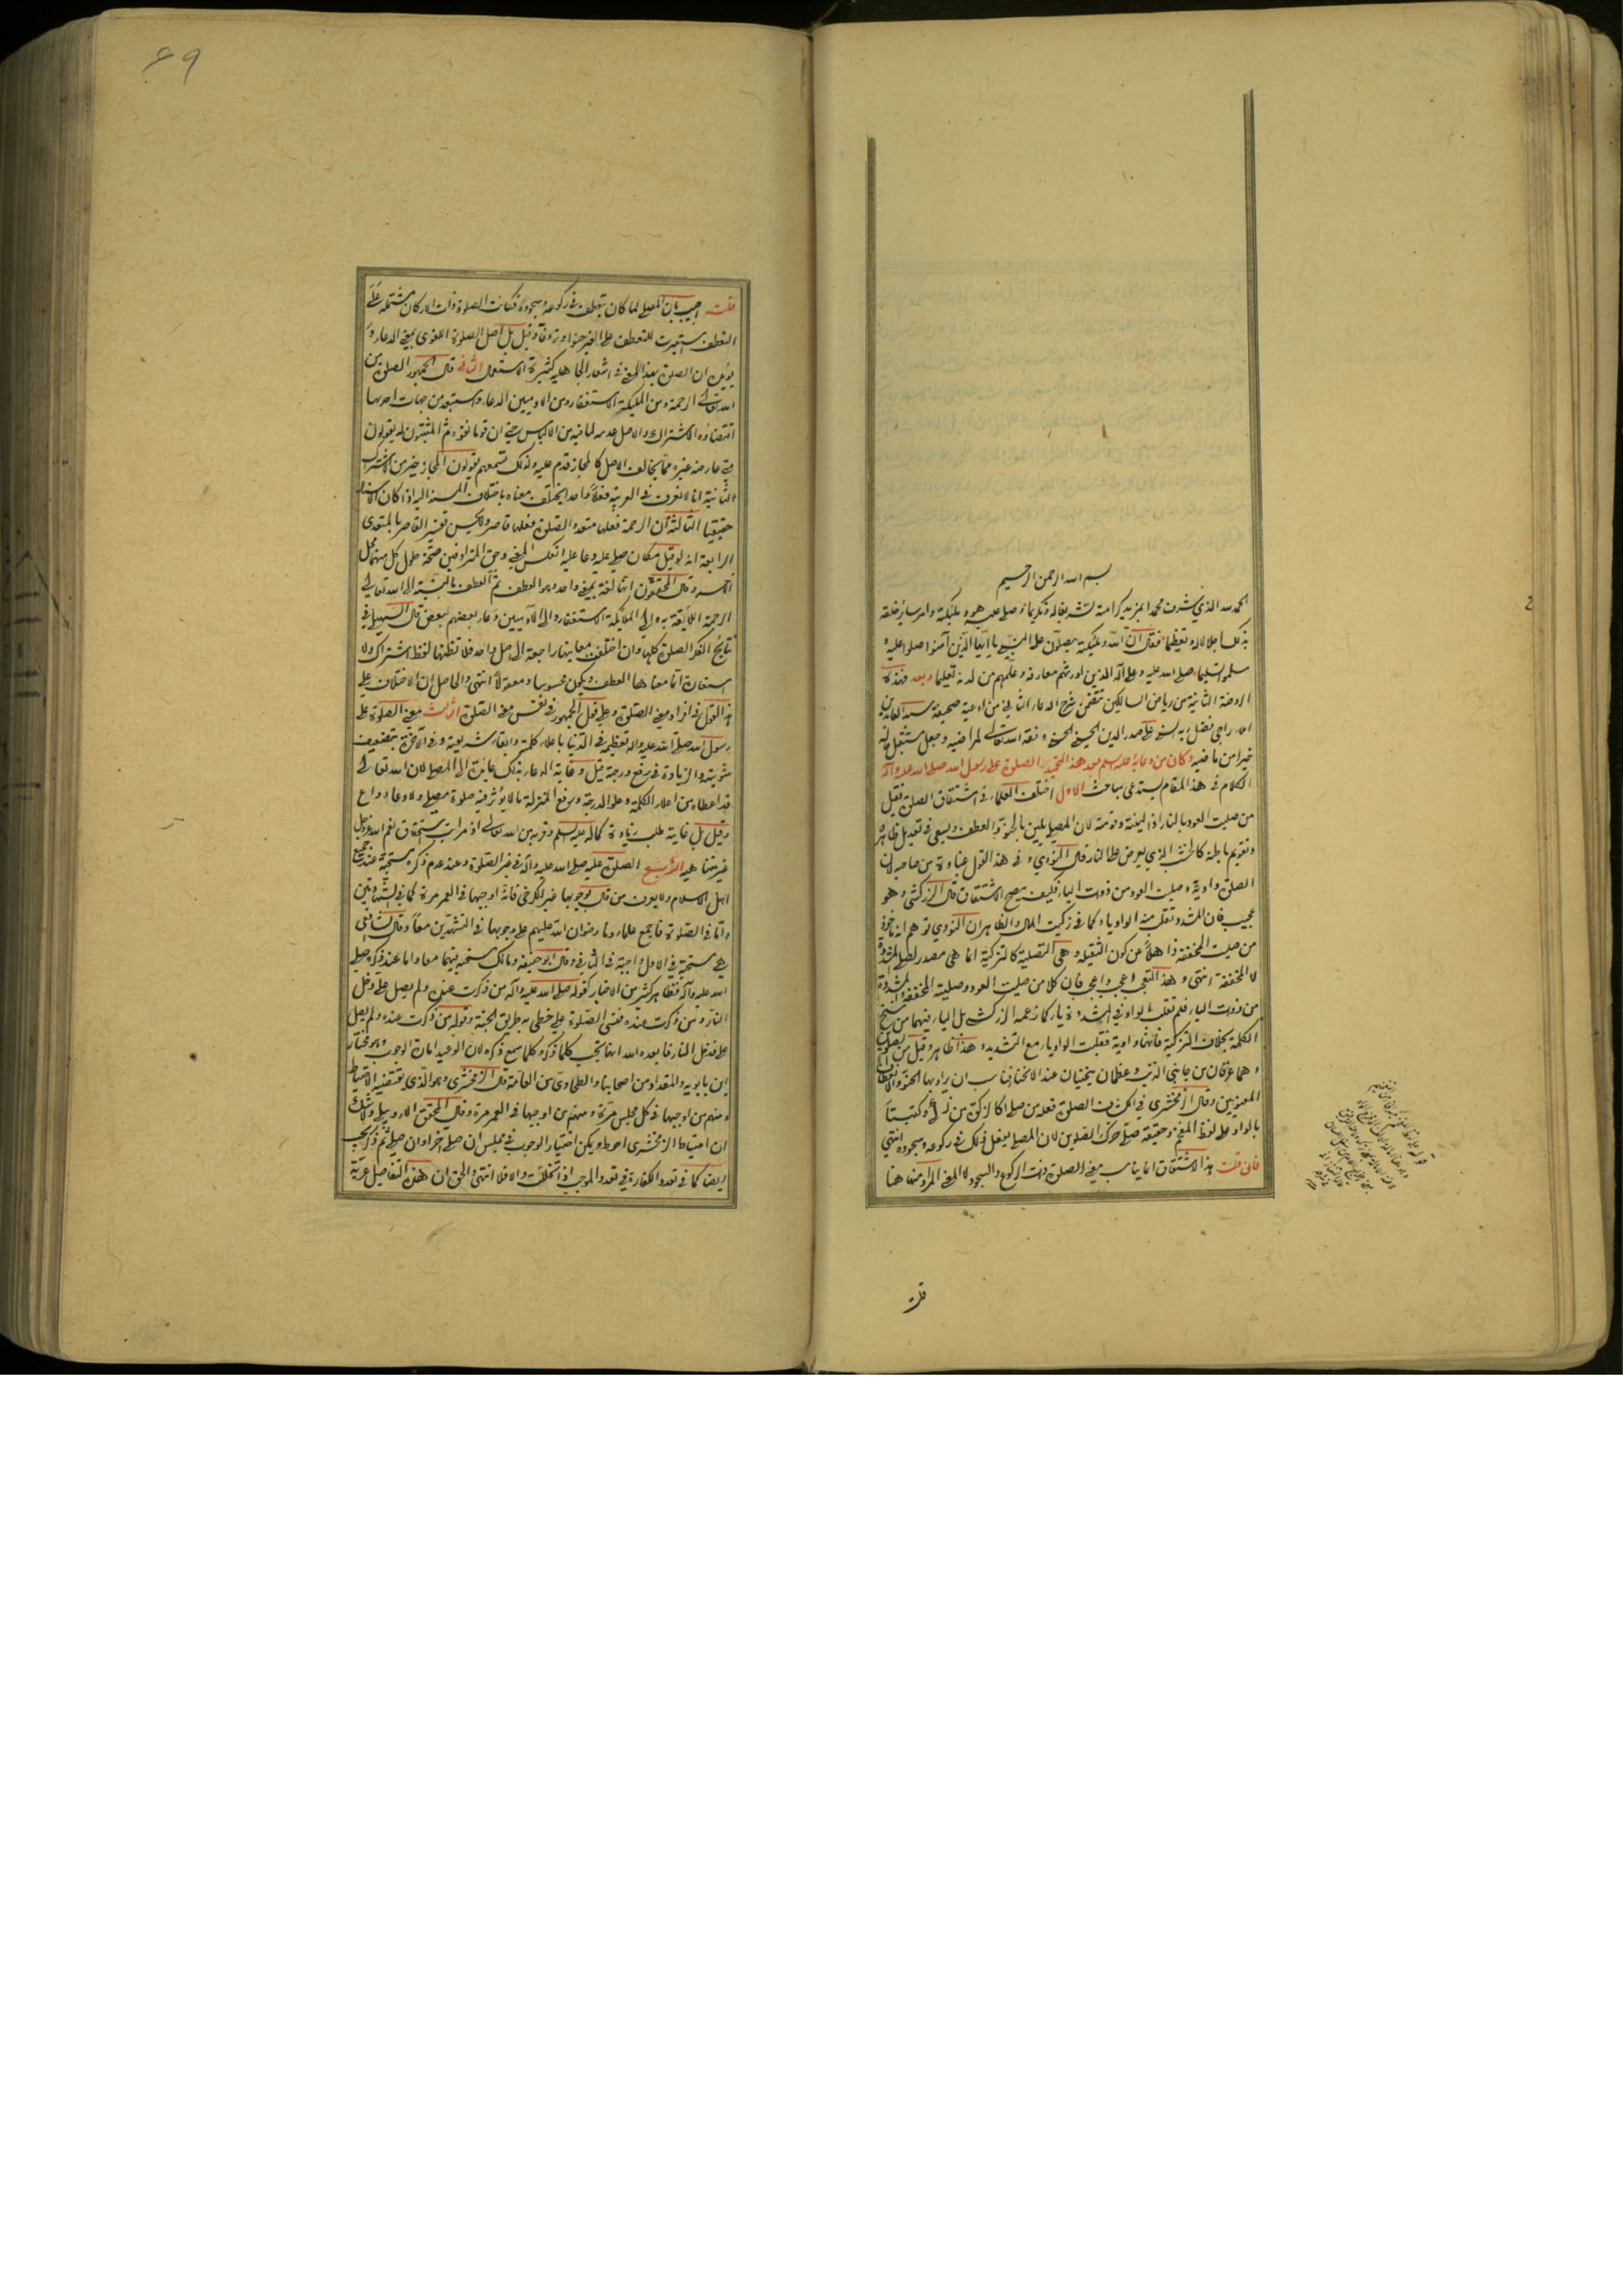 بسم الله الرحمن الرحيم
الحمد لله الذي شرف محمدا بمزيد كرامته لتشريفا له وتكريما وصلى عليه هو وملئكته وامر ساير خلقه
بذلك اجلالا له وتعظيما فقال ان الله وملئكته يصلون على النبي يا ايها الذين آمنوا صلوا عليه و
سلموا تسليما صلى الله عليه وعلى آله الذين اورثهم معارفه وعلمهم من لدنه تعليما وبعد فهذه
الروضة الثانية من رياض السالكين تتضمن شرح الدعاء الثاني من ادعية صحيفة سيد العابدين
املاء راجي فضل ربه السني علي صدر الدين الحسيني الحسني وفقه الله تعالى لمراضيه وجعل مستقبل حاله
خيرا من ماضيه وكان من دعائه عليه السلم بعد هذا التحميد الصلوة على رسول الله صلى الله عليه وآله
الكلام في هذا المقام يستدعي مباحث الاول اختلف العلماء في اشتقاق الصلوة فقيل
من صليت العود بالنار اذا لينته وقومته لان المصلي يلين بالحنو والعطف ويسعى في تعديل ظاهره
وتقويم باطنه كالخشب الذي يعرض على النار قال النووي وفي هذا القول غباوة من صاحبه لان
الصلوة واوية وصليت العود من ذوات الياء فكيف يصح الاشتقاق قال الزركشي وهو
عجيب فان المشدد تقلب فيه الواو ياء كما في زكيت المال والظاهر ان النووي توهم انه ماخوذ
من صليت المخففة ذاهلا عن كون الثقيلة وهي التصلية كالتزكية انما هي مصدر لصلى المشددة
لا المخففة انتهى وهذا التعجب اعجب واعجب فان كلا من صليت العود وصليته المخففة والمشددة
من ذوات الياء فلم تقلب الواو في المشددة ياء كما زعمه الزركشي بل الياء فيهما من سنخ
الكلمة بخلاف التزكية فانها واوية فقلبت الواو ياء مع التشديد وهذا ظاهر وقيل من الصلوين
وهما عرقان من جانبي الذنب وعظمان ينحنيان عند الانحناء فناسب ان يراد بها الحنو والانعطاف
المعنويين وقال الزمخشري في الكشاف الصلوة فعلة من صلى كالزكوة من زكى وكتبتا
بالواو على لفظ المفخم وحقيقة صلى حرك الصلوين لان المصلي يفعل ذلك في ركوعه وسجوده انتهى
فان قلت هذا الاشتقاق انما يناسب معنى الصلوة ذات الركوع والسجود لا المعنى المراد منها هنا
قلت
۶۹
قلت اجيب بان المصلي لما كان يتعطف في ركوعه وسجوده فكانت الصلوة ذات الاركان مشتملة على
التعطف استعيرت للتعطف على الغير حنوا وترؤفا وقيل بل اصل الصلوة اللغوي بمعنى الدعاء و
يؤيده ان الصلوة بهذا المعنى في اشعار الجاهلية كثيرة الاستعمال الثاني قال الجمهور الصلوة من
الله تعالى الرحمة ومن الملئكة الاستغفار ومن الآدميين الدعاء واستبعد من جهات احديها
اقتضاؤه الاشتراك والاصل عدمه لما فيه من الالباس حتى ان قوما نفوه ثم المثبتون له يقولون
متى عارضه غيره مما يخالف الاصل كالمجاز قدم عليه ولذلك تسمعهم يقولون المجاز خير من الاشتراك
الثانية انا لا نعرف في العربية فعلا واحدا يختلف معناه باختلاف المسند اليه اذا كان الاسناد
حقيقيا الثالثة ان الرحمة فعلها متعد والصلوة فعلها قاصر ولا يحسن تفسير القاصر بالمتعدي
الرابعة انه لو قيل مكان صلى عليه دعا عليه انعكس المعنى وحق المترادفين صحة حلول كل منهما محل
الآخر وقال المحققون انها لغة بمعنى واحد وهو العطف ثم العطف بالنسبة الى الله تعالى
الرحمة اللايقة به والى الملائكة الاستغفار والى الآدميين دعاء بعضهم لبعض قال السهيلي في
نتايج الفكر الصلوة كلها وان اختلفت معانيها راجعة الى اصل واحد فلا تظنها لفظ اشتراك ولا
استعارة انما معناها العطف ويكون محسوسا ومعقولا انتهى والحاصل ان الاختلاف على
هذا القول في افراد معنى الصلوة وعلى قول الجمهور في نفس معنى الصلوة الثالث معنى الصلوة على
رسول الله صلى الله عليه وآله تعظيمه في الدنيا باعلاء كلمته وابقاء شريعته وفي الآخرة بتضعيف
مثوبته والزيادة في رفع درجته قيل وغاية الدعاء بذلك عائدة الى المصلي لان الله تعالى
قد اعطاه من اعلاء الكلمة وعلو الدرجة ورفع المنزلة ما لا يؤثر فيه صلوة مصل ولا دعاء داع
وقيل بل غايته طلب زيادة كماله عليه السلم وقربه من الله تعالى اذ مراتب استحقاق نعم الله عز وجل
غير متناهية الرابع الصلوة عليه صلى الله عليه وآله في غير الصلوة وعند عدم ذكره مستحبة عند جميع
اهل الاسلام ولا يعرف من قال بوجوبها غير الكرخي فانه اوجبها في العمر مرة كما في الشهادتين
واما في الصلوة فاجمع علماؤنا رضوان الله عليهم على وجوبها في التشهدين معا وقال الشافعي
هي مستحبة في الاول واجبة في الثاني وقال ابو حنيفة ومالك مستحبة فيهما معا واما عند ذكره صلى
الله عليه وآله فظاهر كثير من الاخبار كقوله صلى الله عليه وآله من ذكرت عنده ولم يصل علي دخل
النار ومن ذكرت عنده فنسي الصلوة علي خطئ به طريق الجنة وقوله من ذكرت عنده ولم يصل
علي فدخل النار فابعده الله انها تجب كلما ذكر وكلما سمع ذكره لان الوعيد امارة الوجوب وهو مختار
ابن بابويه والمقداد من اصحابنا والطحاوي من العامة قال الزمخشري وهو الذي يقتضيه الاحتياط
ومنهم من اوجبها في كل مجلس مرة ومنهم من اوجبها في العمر مرة وقال المحقق الاردبيلي ولا شك
ان احتياط الزمخشري احوط ويمكن اختيار الوجوب في مجلس ان صلى آخرا وان صلى ثم ذكر يجب
ايضا كما في تعدد الكفارة في تعدد الموجب اذا تخللت والا فلا انتهى والحق ان هذه التفاصيل عرية